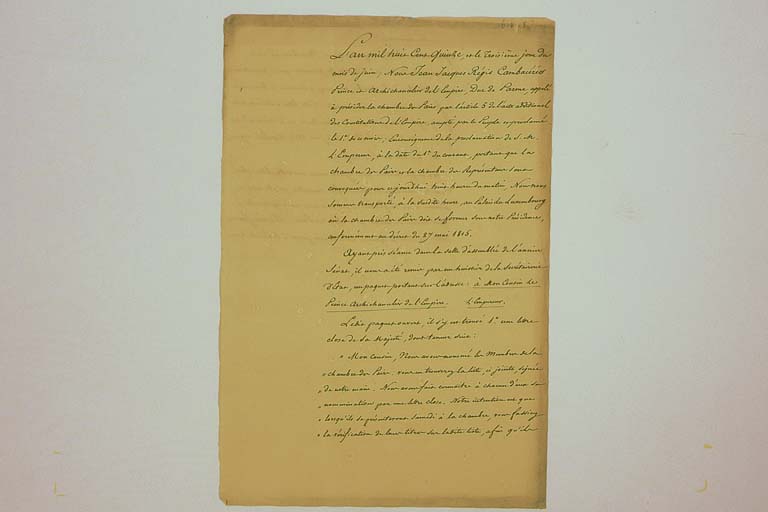 L'an mil huit Cent Quinze, et le Troisième jour du
mois de Juin; Nous Jean Jacques Régis Cambacérès
Prince et Archichancelier de l'Empire, Duc de Parme, appelé
à présider la chambre des Pairs, par l'article 5 de l'acte additionel
des Constitutions de l'Empire, accepté par le Peuple et proclamé
le 1er de ce mois; En conséquence de la proclamation de S. M.
L'Empereur, à la date du 1er du courant, portant que la
chambre des Pairs et la chambre des Représentans sont
convoquées pour cejourd'hui trois heures du matin, Nous nous
sommes transporté, à la susdite heure, au Palais du Luxembourg
où la chambre des Pairs doit se former sous notre Présidence,
conformément au décret du 27 mai 1815.
Ayant pris séance dans la salle d'assemblée de l'ancien
Sénat, il nous a été remis par un huissier de la Secrétairerie
d'Etat, un paquet portant sur l'adresse: à Mon Cousin le
Prince Archichancelier de l'Empire. L'Empereur.
Ledit paquet ouvert, il s'y est trouvé 1° une lettre
close de Sa Majesté, dont teneur suit:
» Mon Cousin, Nous avons nommé les Membres de la
» chambre des Pairs. vous en trouverez la liste, ci jointe, signée
» de notre main. Nous avons fait connaître à chacun d'eux sa
» nomination par une lettre close. Notre intention est que
» lorsqu'ils se présenteront samedi à la chambre, vous fassiez
» la vérification de leurs titres sur ladite liste, afin qu'ils